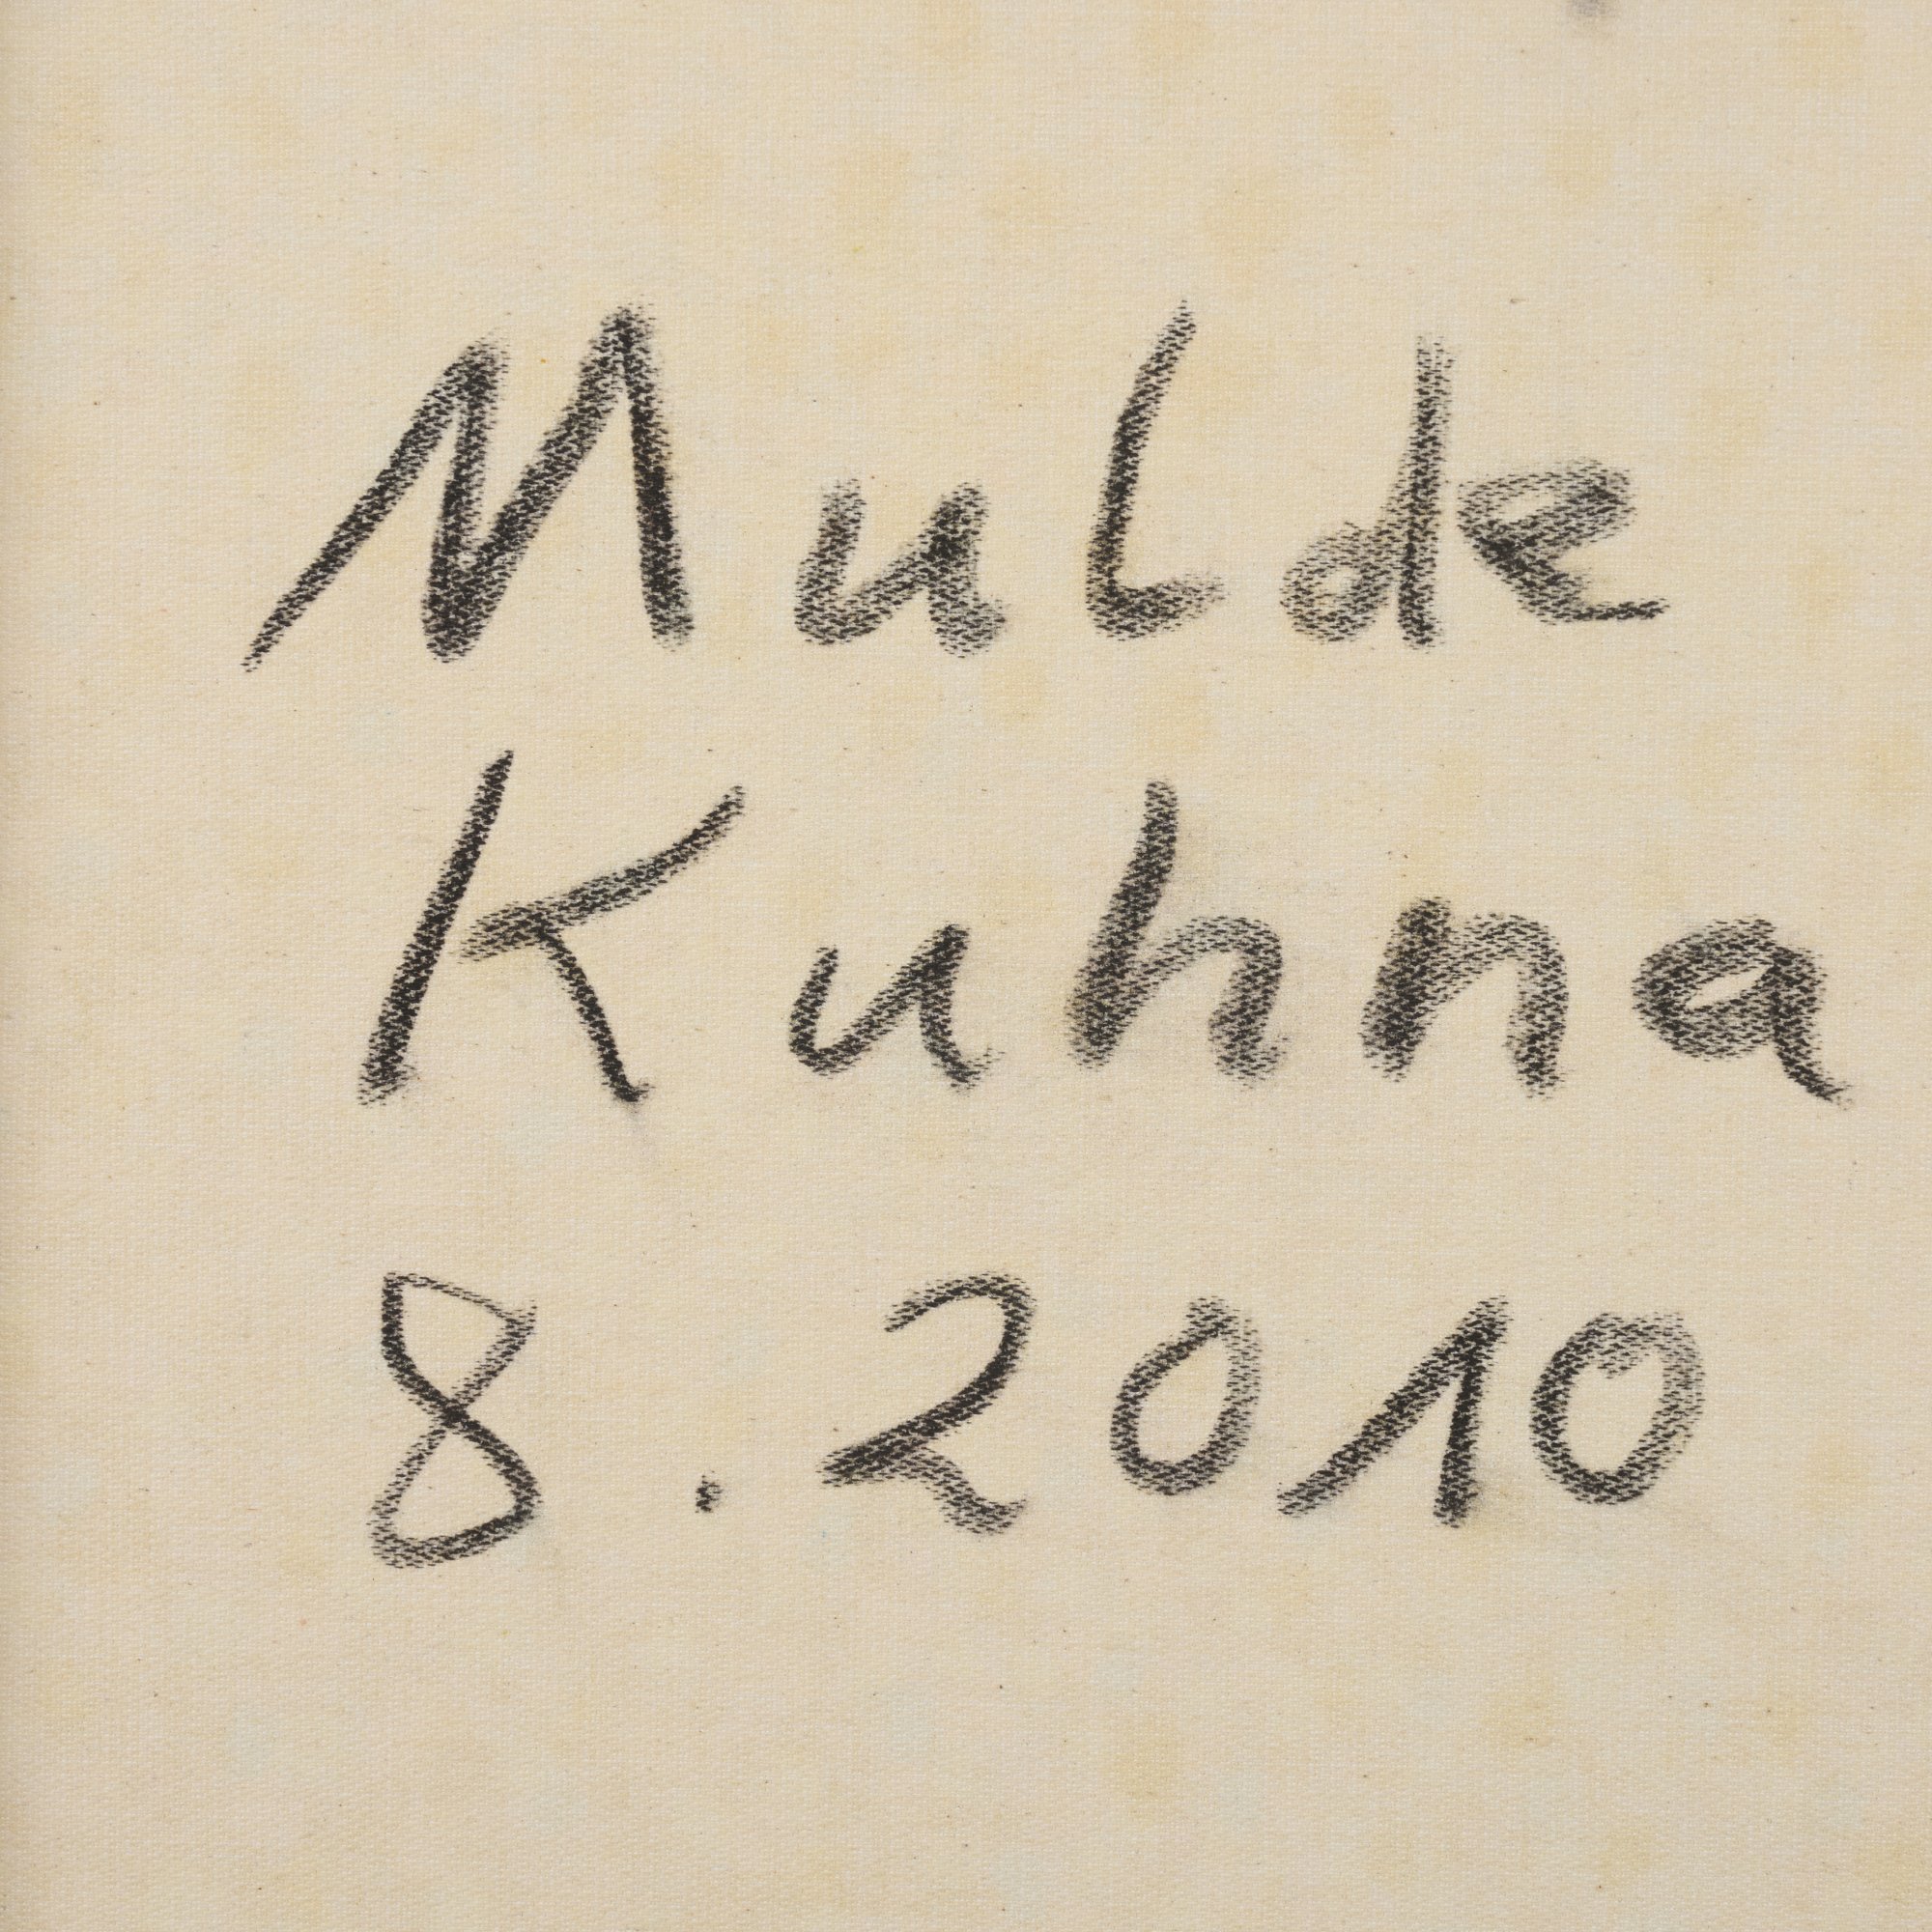 Mulde
Kuhna
8.2010